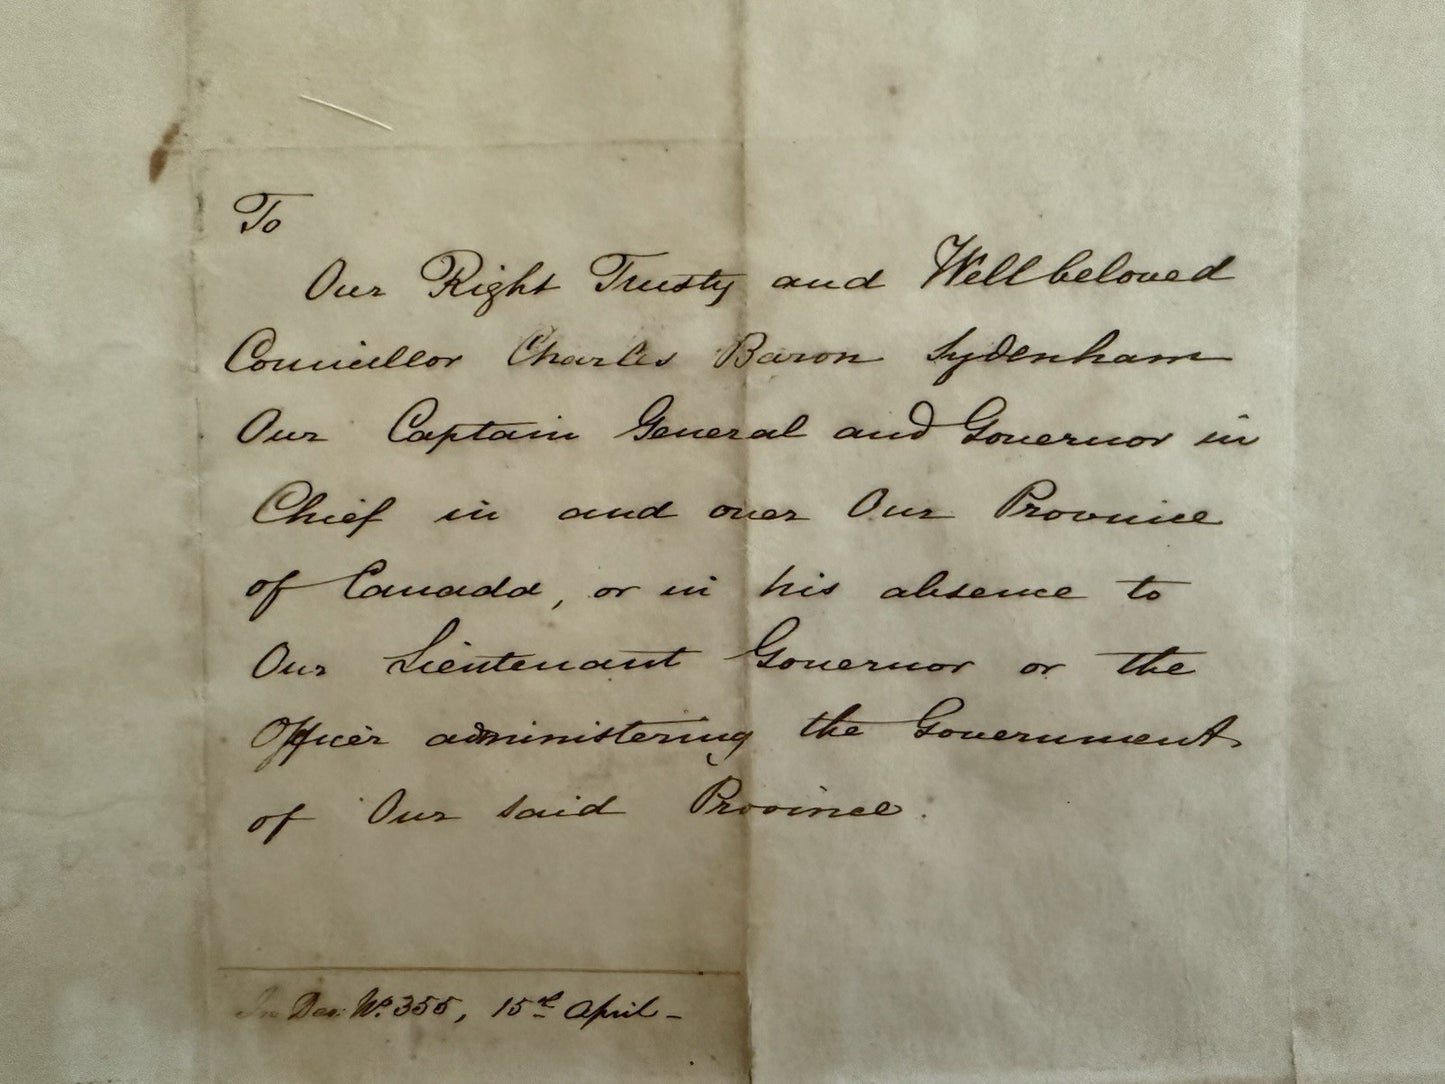 To
Our Right Trusty and Wellbeloved
Councillor Charles Baron Sydenham
Our Captain General and Governor in
Chief in and over Our Province
of Canada, or in his absence to
Our Lieutenant Governor or the
Officer administering the Government
of Our said Province.
In Des: No. 355, 15th April –